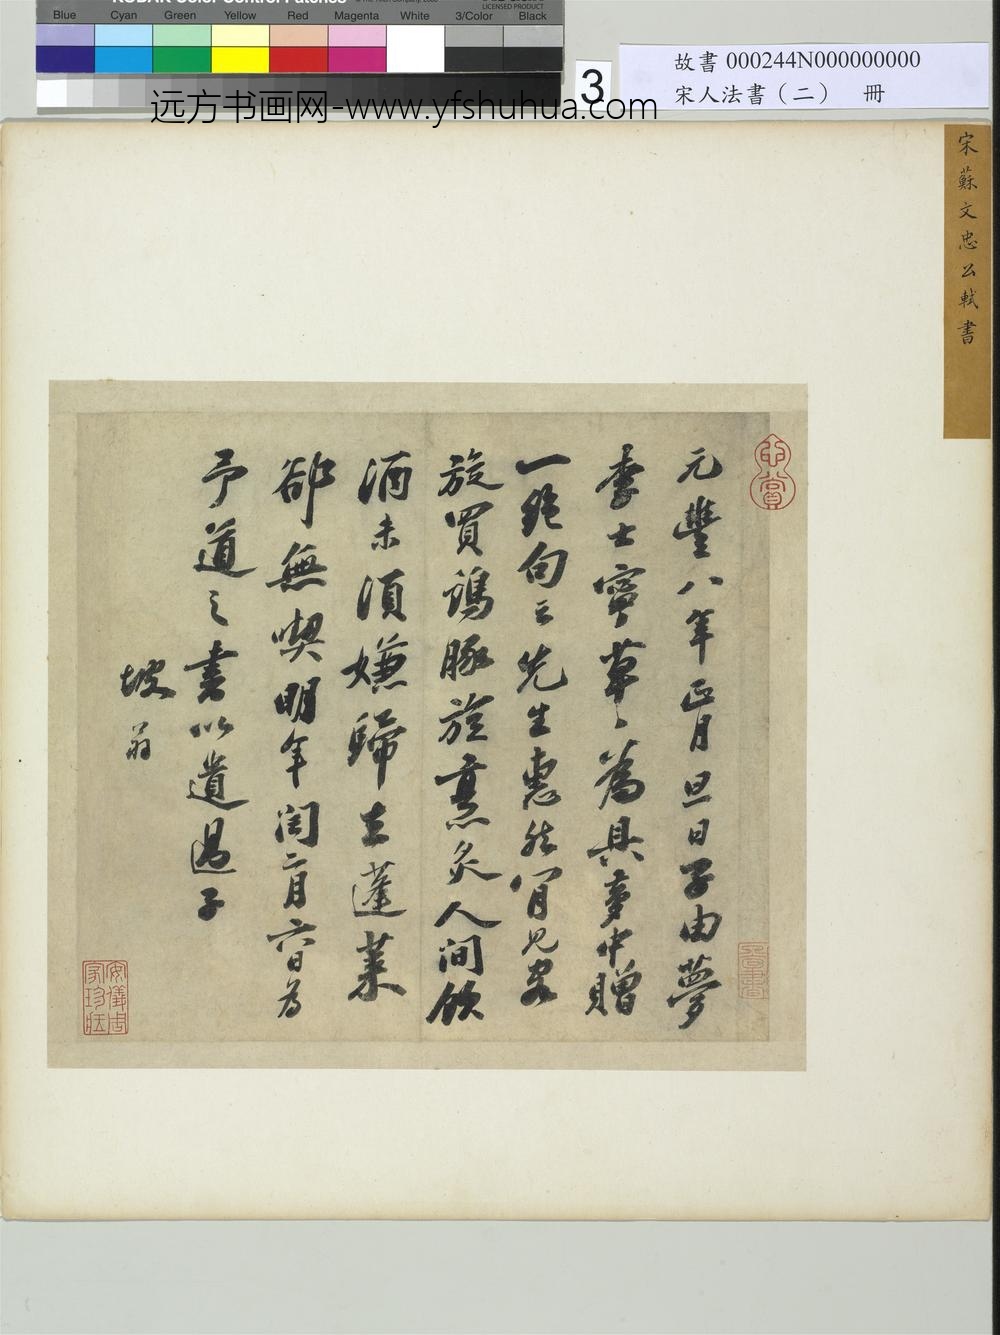 KODAK Color Control Patches
LICENSED PRODUCT
Blue Cyan Green Yellow Red Magenta White 3/Color Black
3
故書 000244N000000000
宋人法書（二） 冊
远方书画网-www.yfshuhua.com
宋蘇文忠公軾書
元豐八年正月旦日子由夢
李士寧草草為具夢中贈
一絕句云先生惠然肯見客
旋買鷄豚旋烹炙人間飲
酒未須嫌歸去蓬萊
卻無喫明年閏二月六日為
予道之書以遺過子
坡翁
心賞
安儀周家珍藏